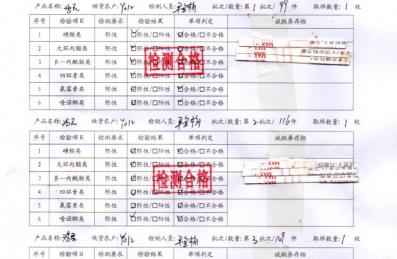 产品名称: 供货农户: Y012 检测人员: 批次/数量: 第 1 批次/ 99 件 取样数量: 1 枚
序号 检验项目 检测要求 检验结果 单项判定 试纸条存档
1 磺胺类 阴性 ☑阴性/☐阳性 ☑合格/☐不合格
2 大环内酯类 阴性 ☑阴性/☐阳性 ☑合格/☐不合格
3 β-内酰胺类 阴性 ☑阴性/☐阳性 ☑合格/☐不合格
4 四环素类 阴性 ☑阴性/☐阳性 ☑合格/☐不合格
5 氯霉素类 阴性 ☑阴性/☐阳性 ☑合格/☐不合格
6 喹诺酮类 阴性 ☑阴性/☐阳性 ☑合格/☐不合格
检测合格
产品名称: 供货农户: Y012 检测人员: 批次/数量: 第 2 批次/ 116 件 取样数量: 1 枚
序号 检验项目 检测要求 检验结果 单项判定 试纸条存档
1 磺胺类 阴性 ☑阴性/☐阳性 ☑合格/☐不合格
2 大环内酯类 阴性 ☑阴性/☐阳性 ☑合格/☐不合格
3 β-内酰胺类 阴性 ☑阴性/☐阳性 ☑合格/☐不合格
4 四环素类 阴性 ☑阴性/☐阳性 ☑合格/☐不合格
5 氯霉素类 阴性 ☑阴性/☐阳性 ☑合格/☐不合格
6 喹诺酮类 阴性 ☑阴性/☐阳性 ☑合格/☐不合格
检测合格
产品名称: 供货农户: Y012 检测人员: 批次/数量: 第 3 批次/ 件 取样数量: 1 枚
序号 检验项目 检测要求 检验结果 单项判定 试纸条存档